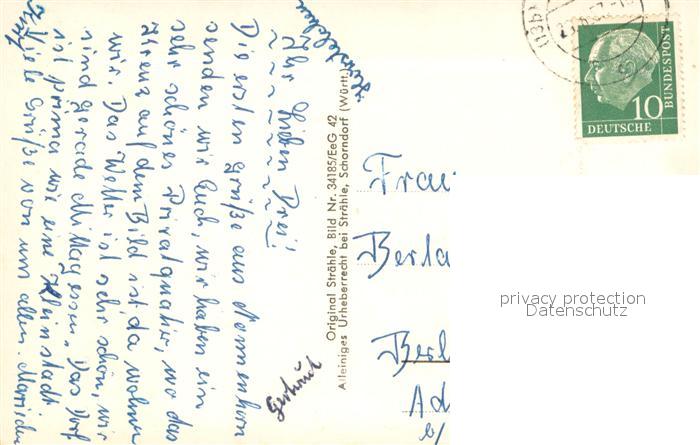 Ihr Lieben Drei!
Die ersten Grüße aus Nonnenhorn
senden wir Euch, wir haben ein
sehr schönes Privatquatier, wo das
Kreuz auf dem Bild ist da wohnen
wir. Das Wetter ist sehr schön, wir
sind gerade Mittagessen. Das Dorf
ist prima wie eine Kleinstadt
Viele Grüße von uns allen.
Gertrud
Original Strähle, Bild Nr. 34185/EeG 42
Alleiniges Urheberrecht bei Strähle, Schorndorf (Württ.)
10
DEUTSCHE
BUNDESPOST
Frau
Berta
Berl
Ad
b/
privacy protection
Datenschutz